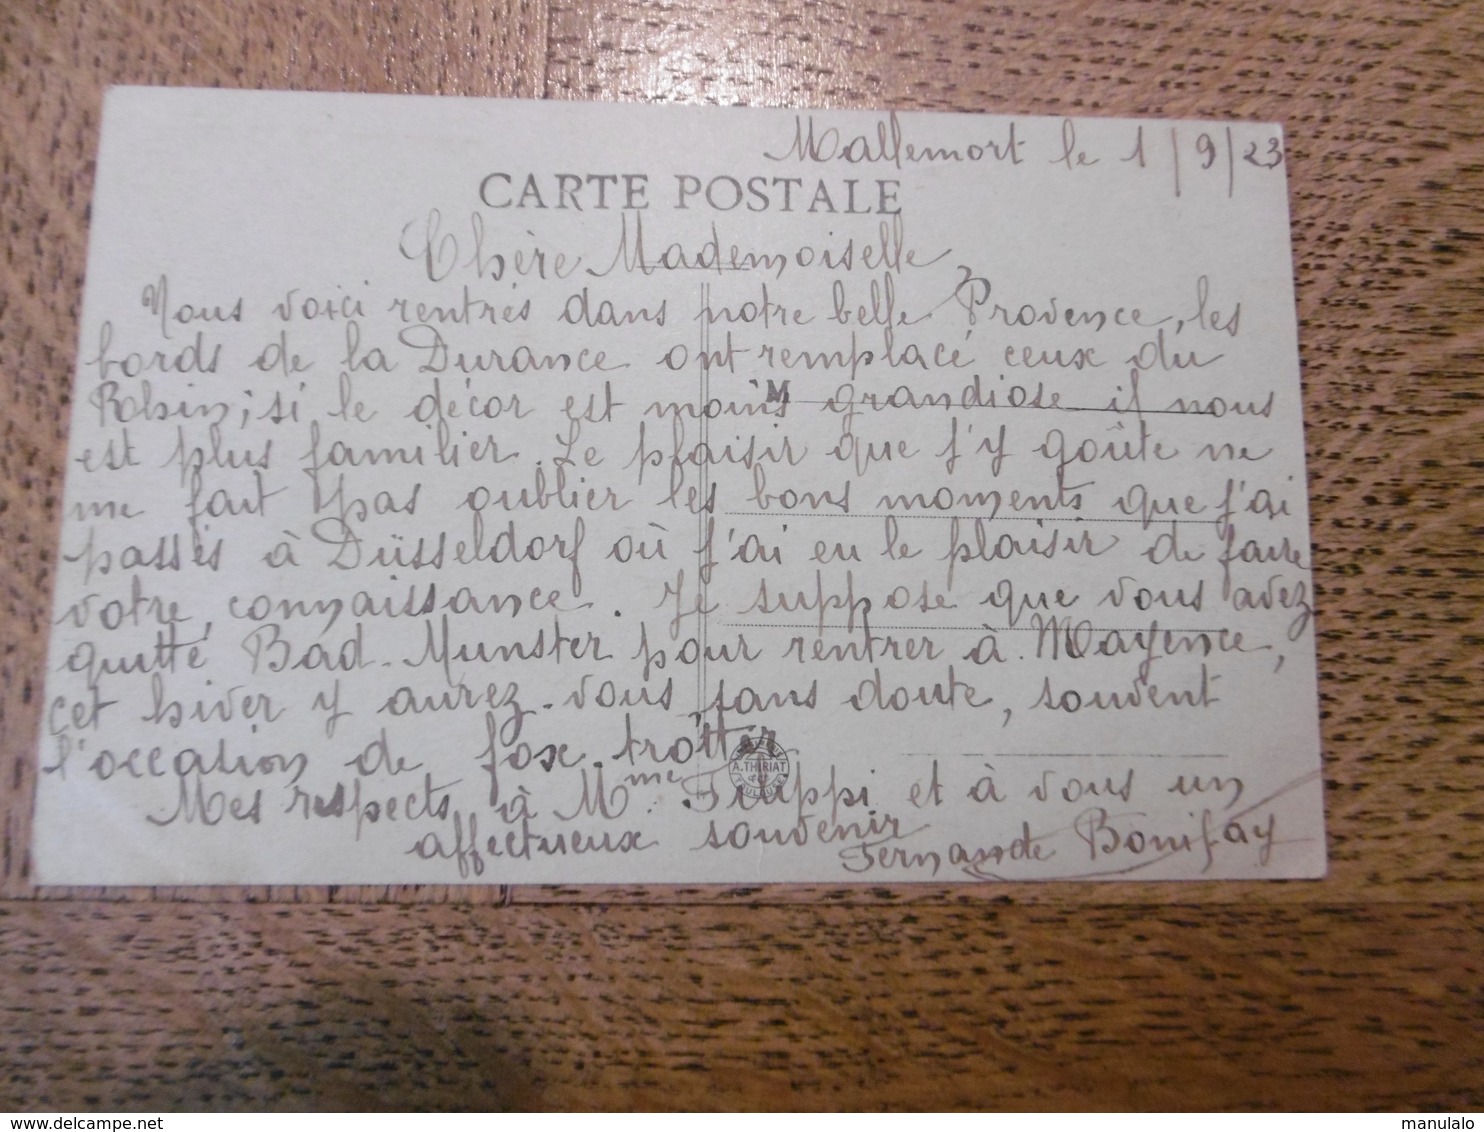 Mallemort le 1/9/23
CARTE POSTALE
Chère Mademoiselle,
Nous voici rentrés dans notre belle Provence, les
bords de la Durance ont remplacé ceux du
Rohin; si le décor est moins grandiose il nous
est plus familier. Le plaisir que j'y goûte ne
me fait pas oublier les bons moments que j'ai
passés à Düsseldorf où j'ai eu le plaisir de faire
votre connaissance. Je suppose que vous avez
quitté Bad-Munster pour rentrer à Mayence,
cet hiver y aurez-vous sans doute, souvent
l'occasion de fox-trotter
A. THIRIAT & Cie TOULOUSE
Mes respects à Mme Frappi et à vous un
affectueux souvenir
Fernande Bonifay
manulalo